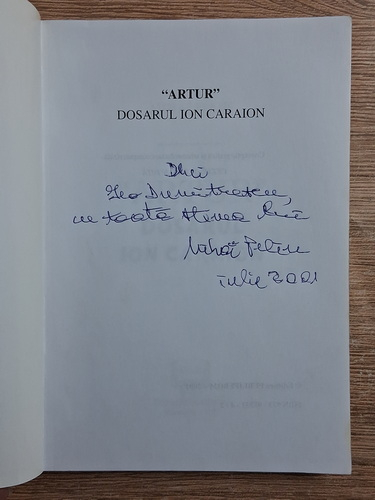 “ARTUR”
DOSARUL ION CARAION
Dlui
Geo Dumitrescu,
cu toată stima lui
Mihai Pelin
iulie 2001
DOSARUL
ION C